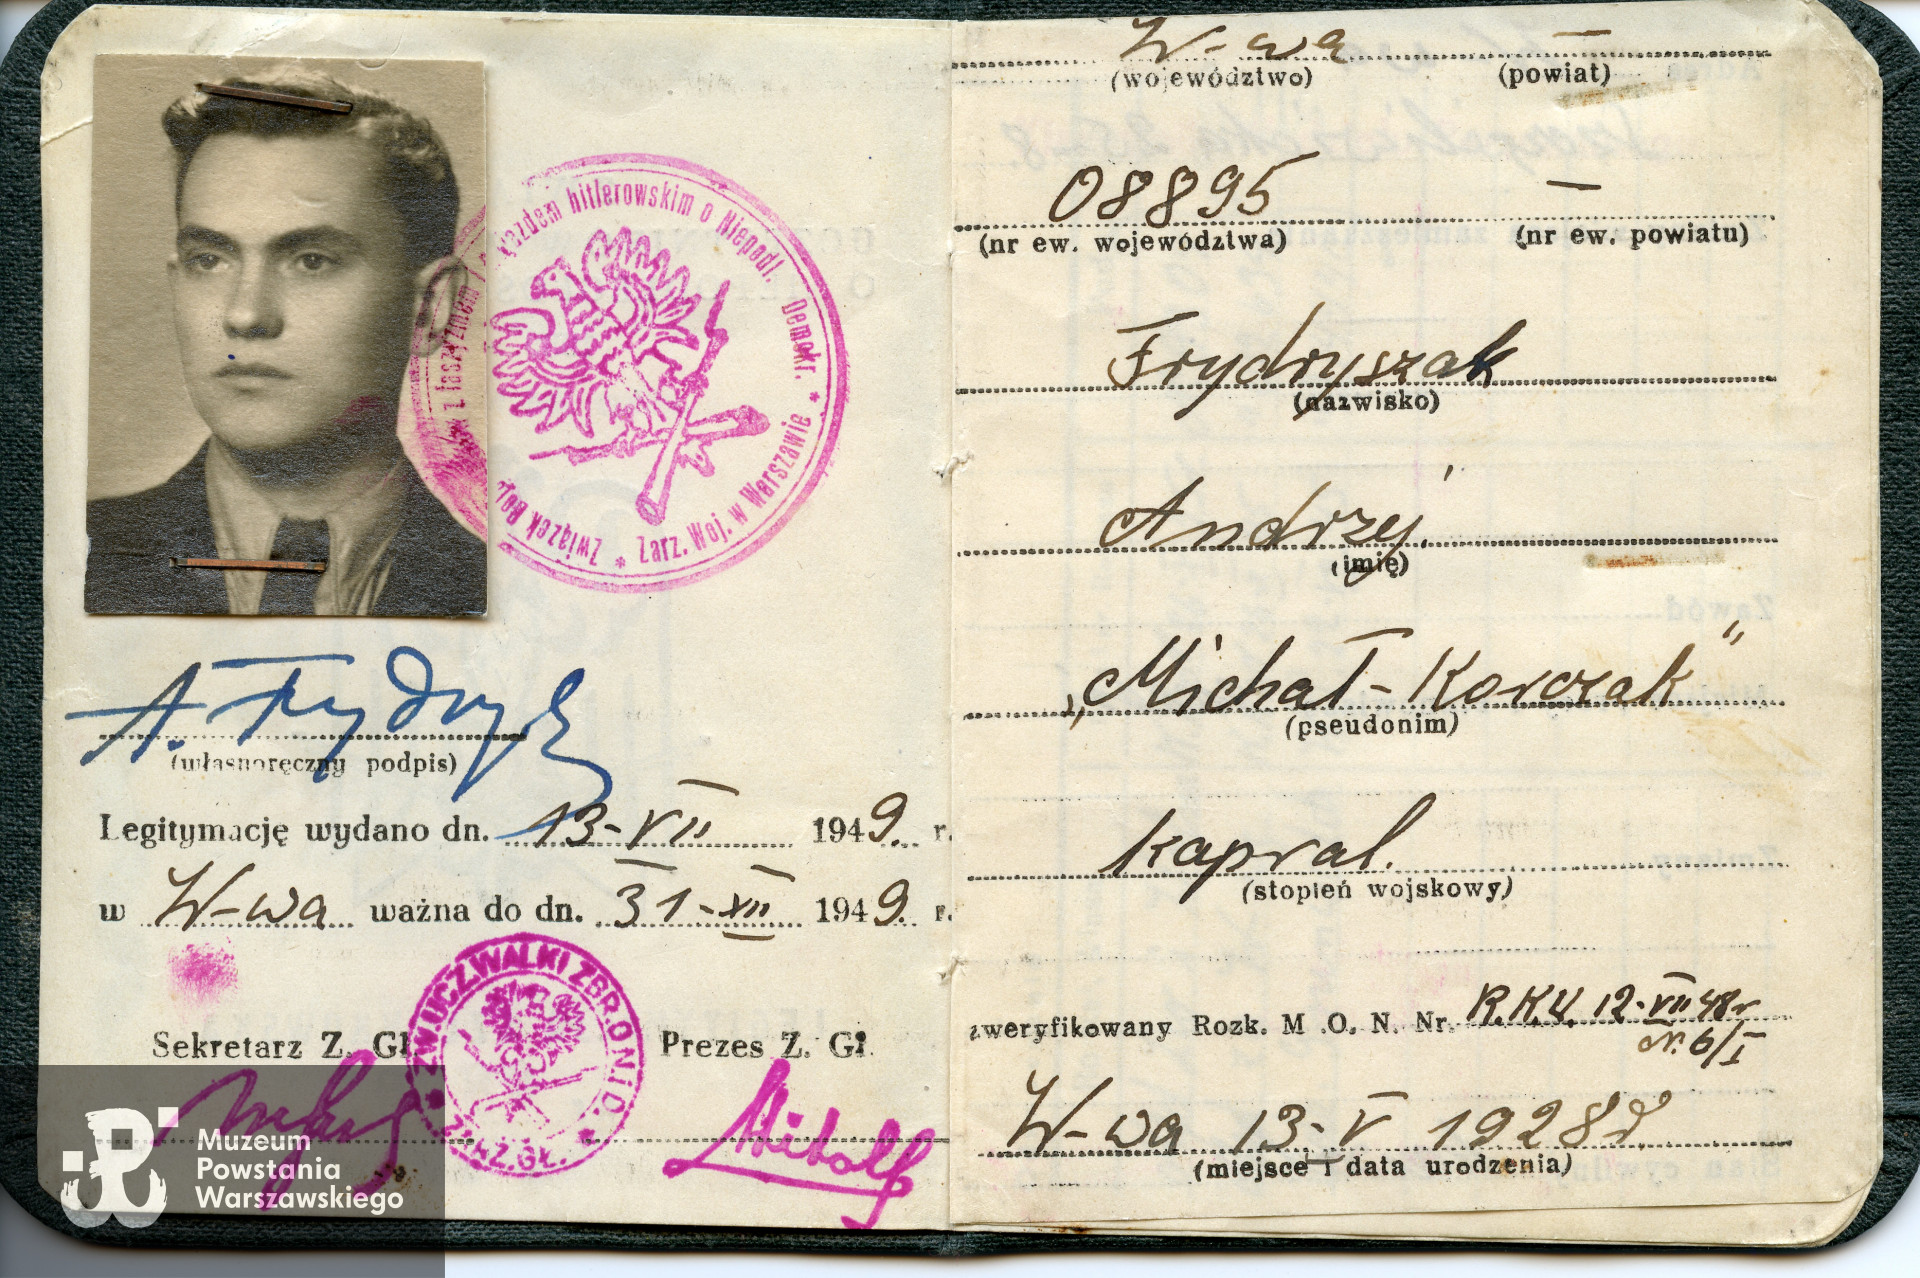 najazdem hitlerowskim o Niepodl. i Demokr. *
Zarz. Woj. w Warszawie *
Związek Boj.
z faszyzmem i
A. Frydrysz
(własnoręczny podpis)
Legitymację wydano dn. 13-VII 1949. r.
w W-wa ważna do dn. 31-XII 1949. r.
Sekretarz Z. Gł.
Prezes Z. Gł.
ZW. UCZ. WALKI ZBR. O N. i D.
* ZARZ. GŁ. *
W-wa —
(województwo) (powiat)
08895 —
(nr ew. województwa) (nr ew. powiatu)
Frydryszak
(nazwisko)
Andrzej
(imię)
„Michał-Korczak"
(pseudonim)
kapral.
(stopień wojskowy)
zweryfikowany Rozk. M. O. N. Nr. R.K.U. 12-VII 48r
Nr. 6/I
W-wa 13-V 1928r
(miejsce i data urodzenia)
Muzeum
Powstania
Warszawskiego